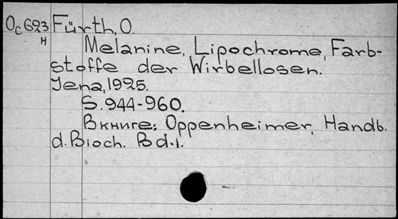 Oc623 Fürth, O.
H
Melanine, Lipochrome, Farb-
stoffe der Wirbellosen.
Jena, 1925.
S. 944-960.
В книге: Oppenheimer, Handb.
d. Bioch. Bd. 1.